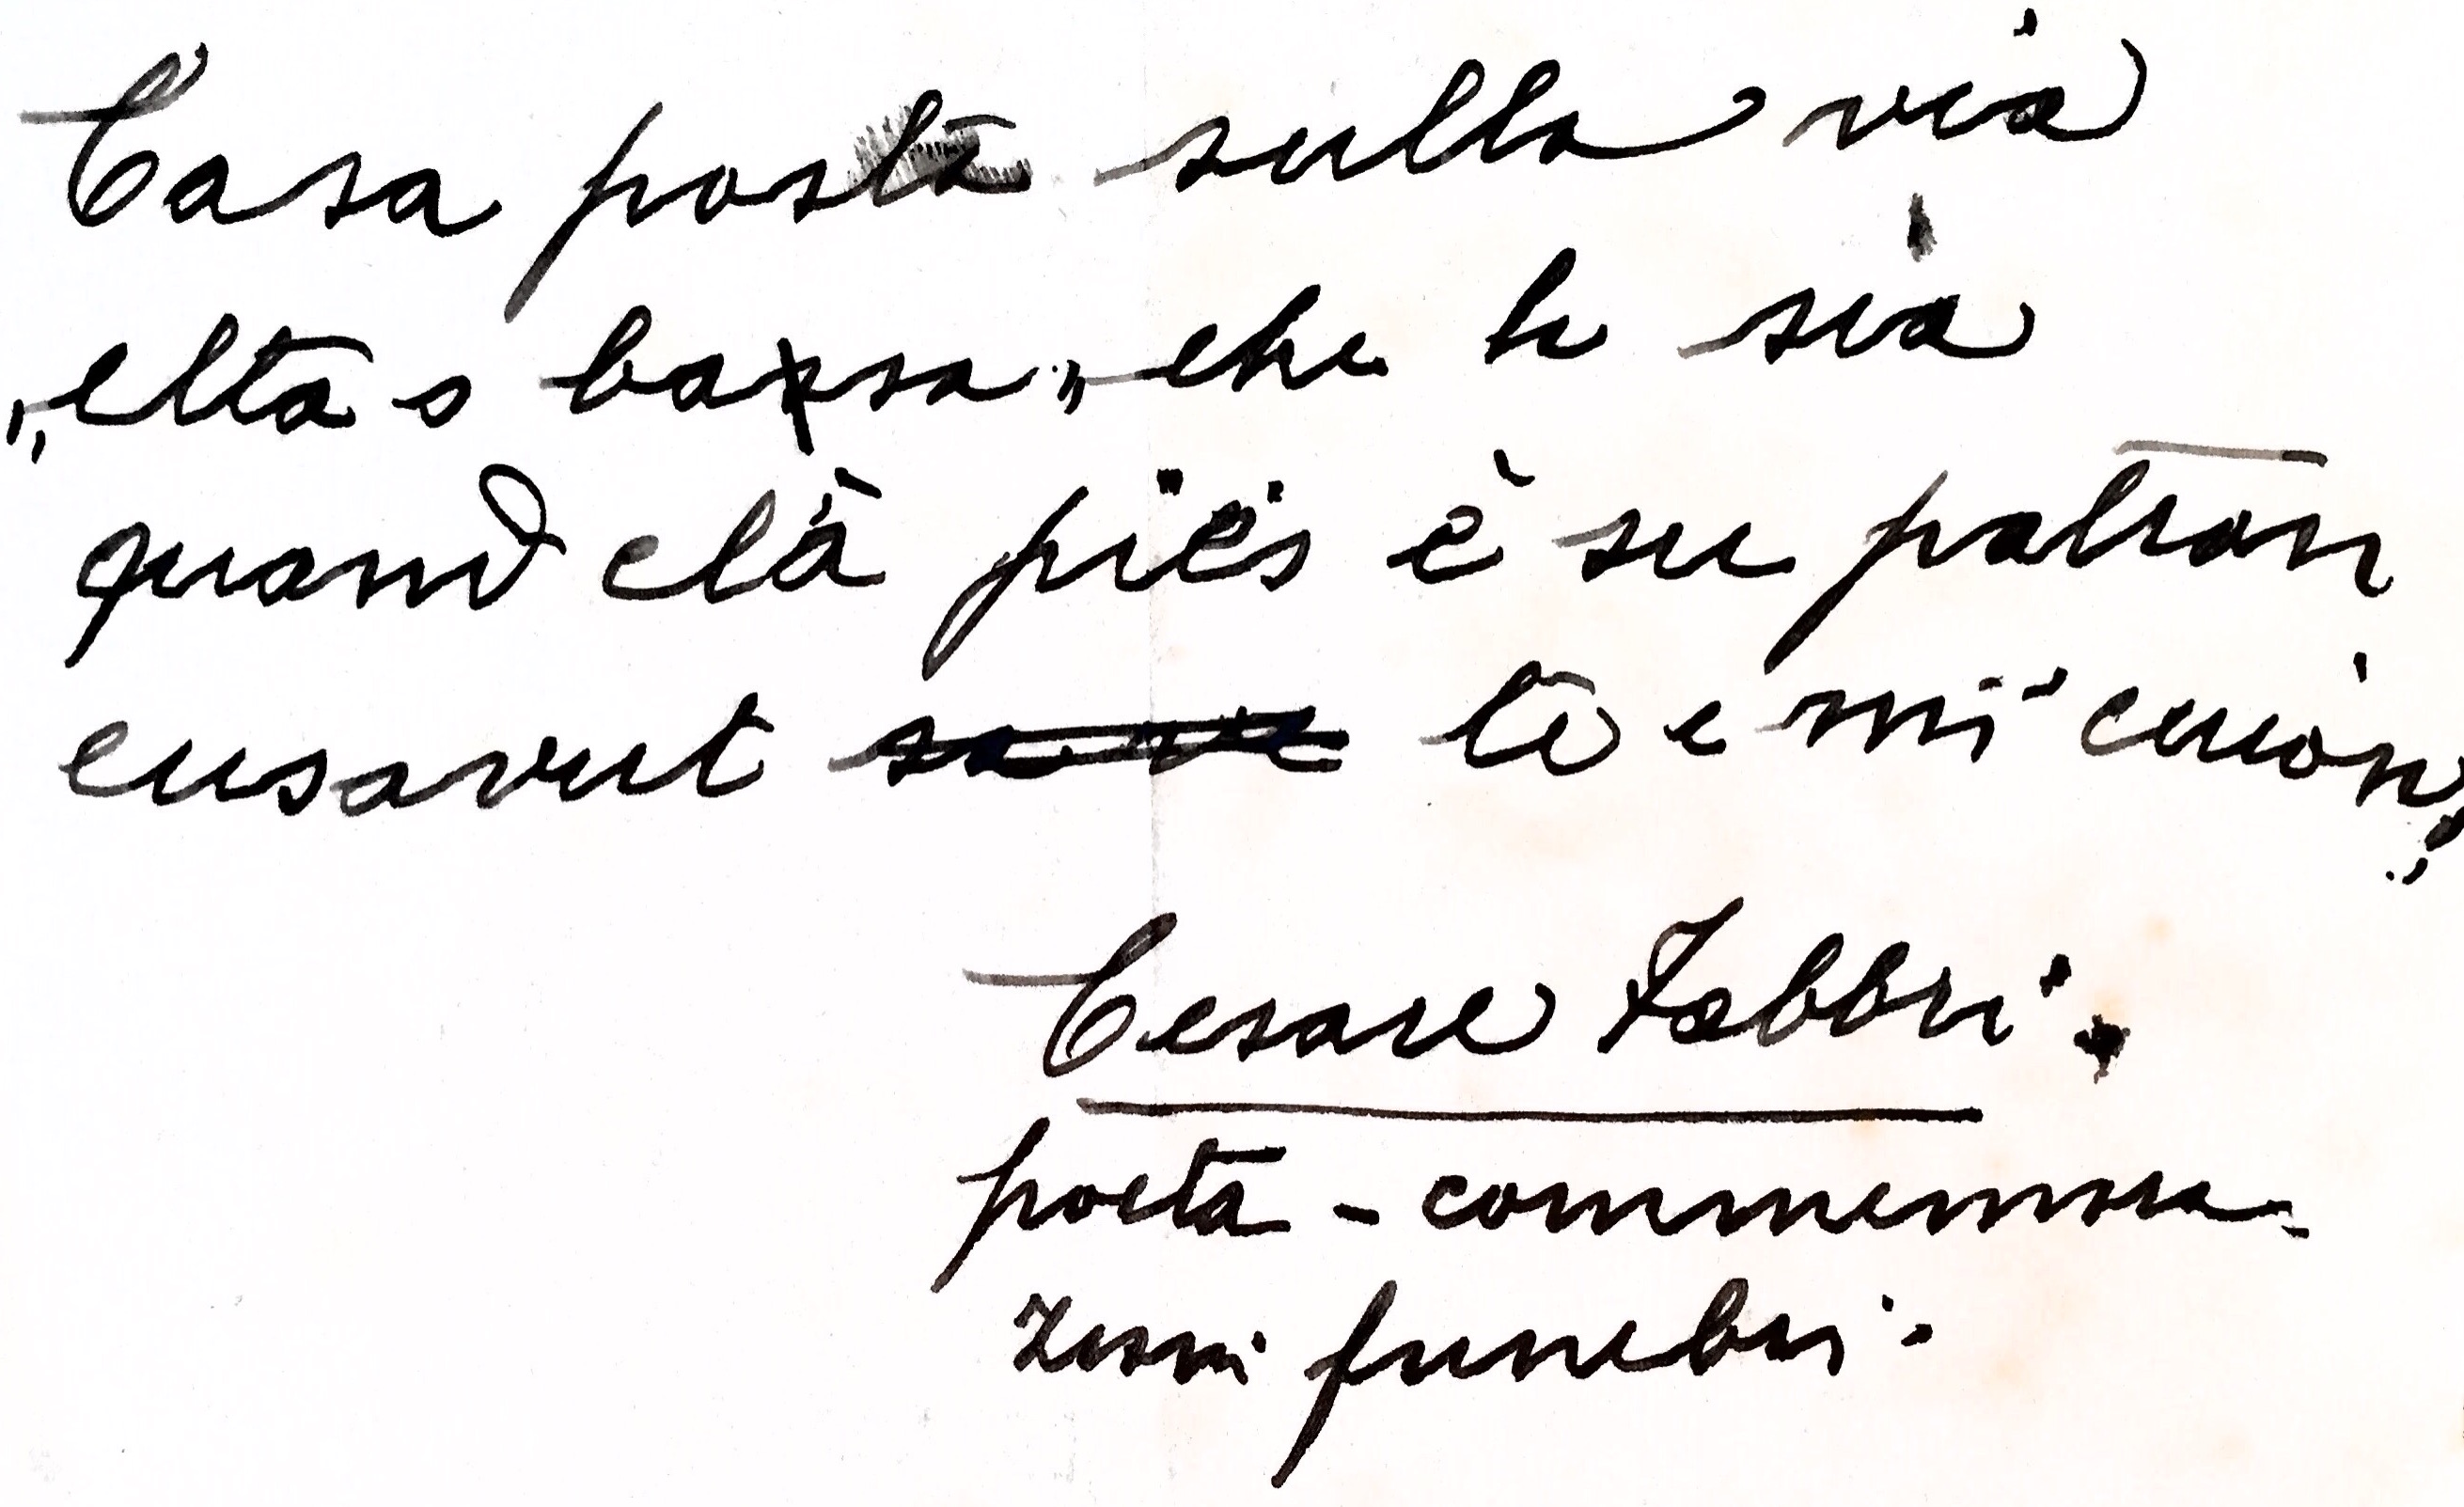 Casa posta sulla via
„elta o bassa„ che la sia
quand clà piës ě su patron
cusavut tò e mi cuiòn!
Cesare Fabbri.
poeta - commemora-
zioni funebri.